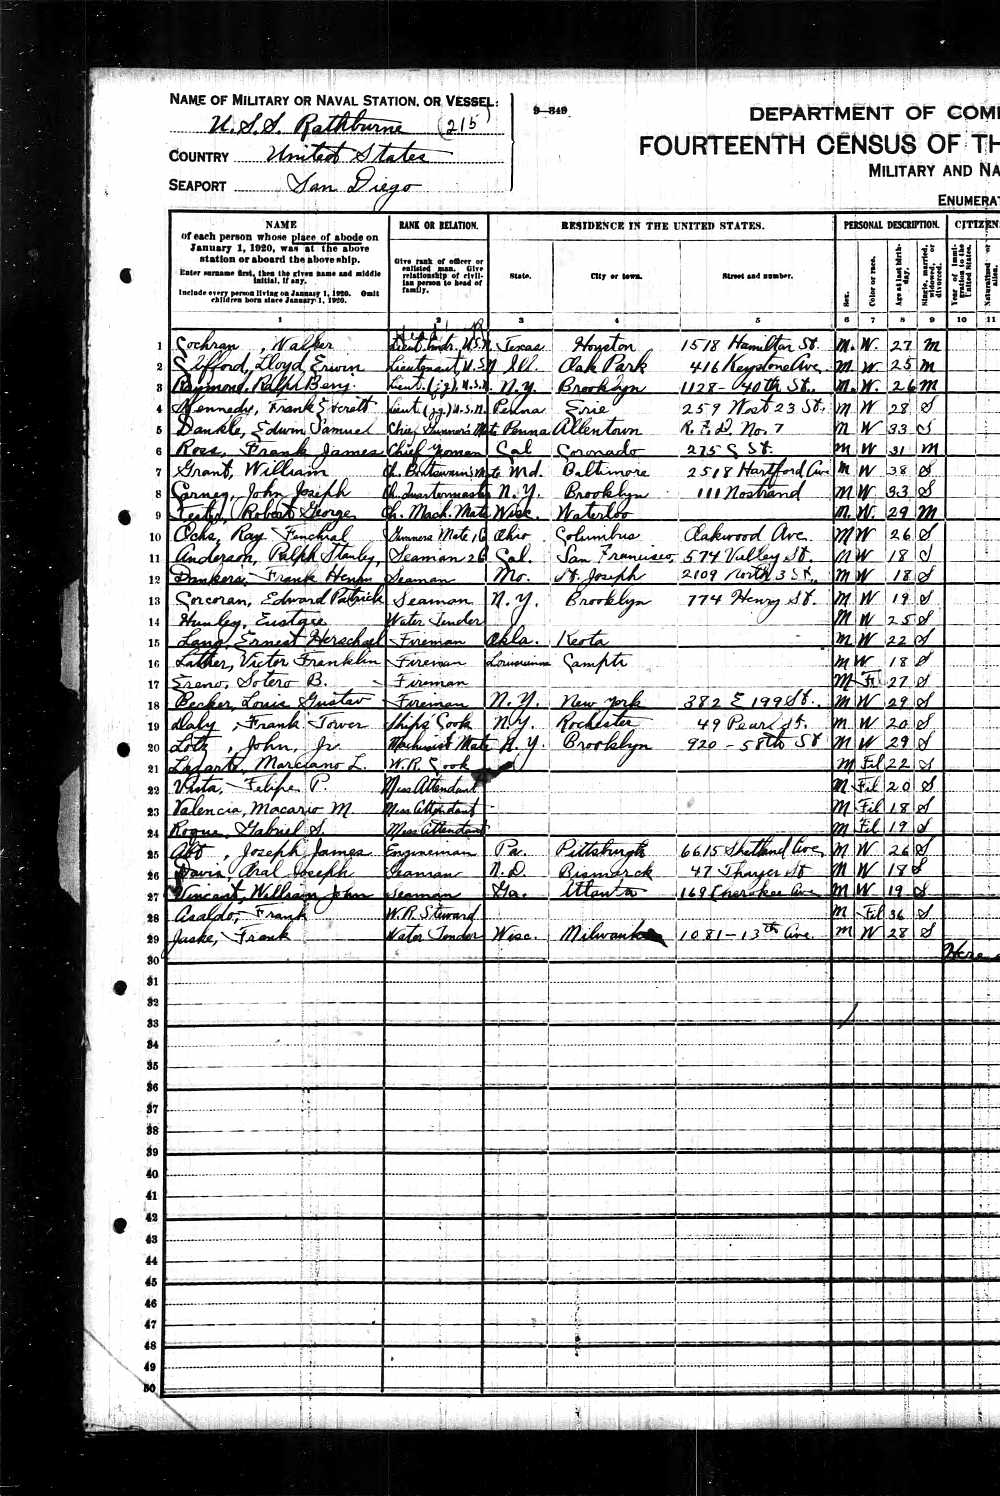 NAME OF MILITARY OR NAVAL STATION, OR VESSEL:
U.S.S. Rathburne (215)
COUNTRY United States
SEAPORT San Diego
9—349
DEPARTMENT OF COM
FOURTEENTH CENSUS OF TH
MILITARY AND NA
ENUMERAT
NAME of each person whose place of abode on January 1, 1920, was at the above station or aboard the above ship.
Enter surname first, then the given name and middle initial, if any.
Include every person living on January 1, 1920. Omit children born since January 1, 1920.
RANK OR RELATION.
Give rank of officer or enlisted man. Give relationship of civilian person to head of family.
RESIDENCE IN THE UNITED STATES.
State. City or town. Street and number.
PERSONAL DESCRIPTION.
Sex. Color or race. Age at last birthday. Single, married, widowed, or divorced.
CITIZEN
Year of immigration to the United States. Naturalized or alien.
1 2 3 4 5 6 7 8 9 10 11
1 Cochran, Walker Lieut. Comdr. U.S.N. Texas Houston 1518 Hamilton St. M. W. 27 M
2 Gifford, Lloyd Erwin Lieutenant, U.S.N Ill. Oak Park 416 Keystone Ave. M W 25 M
3 Raymond, Ralph Benj. Lieut. (jg). U.S.N. N.Y. Brooklyn 1128 - 40th St. M. W. 26 M
4 Kennedy, Frank Everett Lieut. (jg.) U.S.N. Penna Erie 259 West 23 St. M W 28 S
5 Dankle, Edwin Samuel Chief Gunner's Mate Penna Allentown R.F.D. No. 7 M W 33 S
6 Ross, Frank James Chief Yeoman Cal Coronado 275 G St. M W 31 M
7 Grant, William Ch. Boatswain's Mate Md. Baltimore 2518 Hartford Ave M W 38 S
8 Carney, John Joseph Ch. Quartermaster N.Y. Brooklyn 111 Nostrand M W 33 S
9 Robert George Ch. Mach. Mate Wisc. Waterloo M. W. 29 M
10 Ochs, Ray Gunners Mate 1C Ohio Columbus Oakwood Ave. M W 26 S
11 Anderson, Ralph Stanley, Seaman 2C Cal. San Francisco, 574 Valley St. M W 18 S
12 Dankers, Frank Henry Seaman Mo. St. Joseph 2109 North 3 St., M W 18 S
13 Corcoran, Edward Patrick Seaman N.Y. Brooklyn 774 Henry St. M W 19 S
14 Hunley, Eustace Water Tender M W 25 S
15 Lang, Ernest Herschael Fireman Okla. Keota M W 22 S
16 Lather, Victor Franklin Fireman Louisianna M W 18 S
17 Ereno, Sotero B. Fireman M Fi 27 S
18 Becker, Louis Gustav Fireman N.Y. New York 382 E 199 St. M W 29 S
19 Daly, Frank Tower Ships Cook N.Y. Rochester 49 Pearl St. M W 20 S
20 Lotz, John, Jr. Machinist Mate N.Y. Brooklyn 920 - 58th St M W 29 S
21 Marciano L. W.R. Cook M Fil 22 S
22 Vista, Felipe P. Mess Attendant M Fil 20 S
23 Valencia, Macario M. Mess Attendant M Fil 18 S
24 Roque, Gabriel S. Mess Attendant M Fil 19 S
25 Abt, Joseph James Engineman Pa. Pittsburgh 6615 Shetland Ave, M W 26 S
26 Davis, Aral Joseph Seaman N.D. Bismarck 47 Thayer St M W 18 S
27 Vincent, William John Seaman Ga. Atlanta 169 Cherokee Ave M W 19 S
28 Asaldo, Frank W.R. Steward M Fil 36 S
29 Juske, Frank Water Tender Wisc. Milwaukee 1081 - 13th Ave. M W 28 S
30 Here
31
32
33
34
35
36
37
38
39
40
41
42
43
44
45
46
47
48
49
50